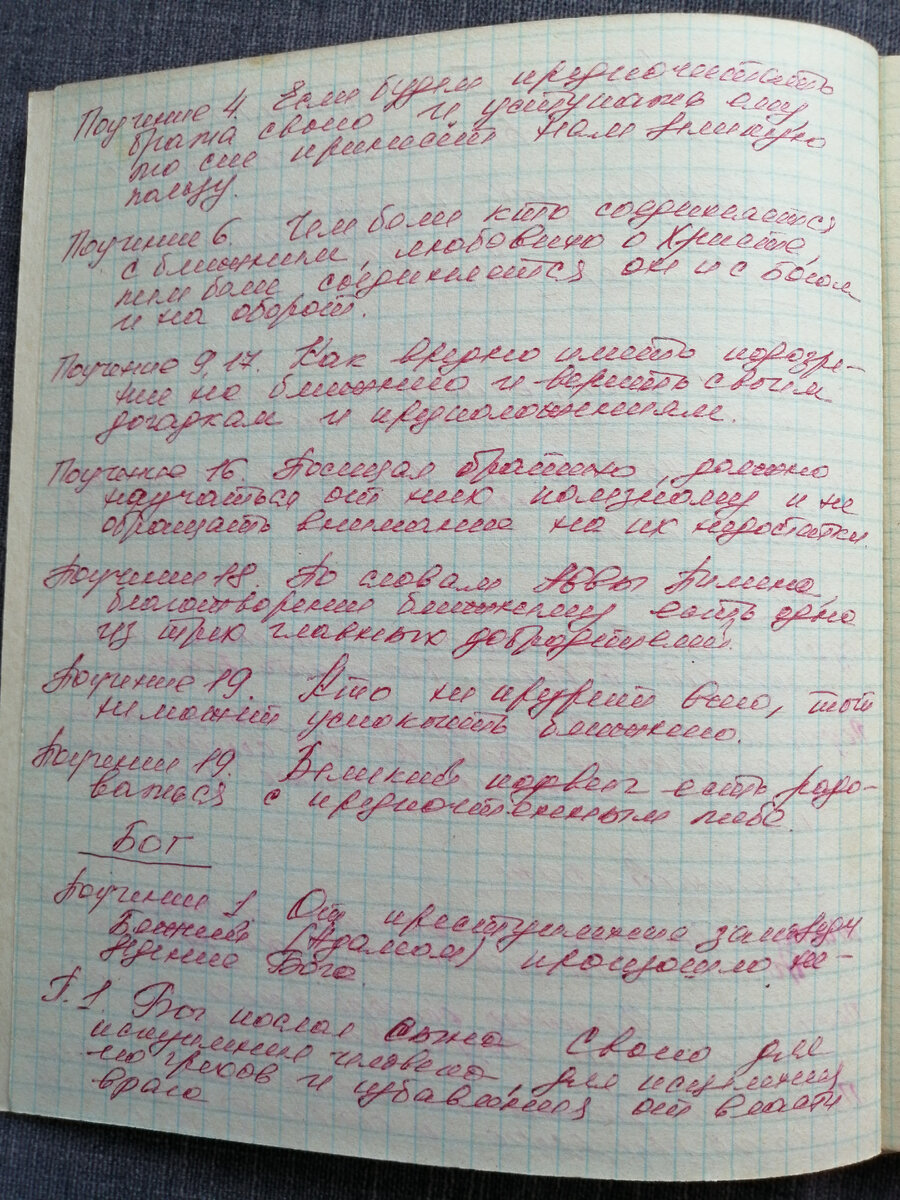 Поучение 4. Если будем предпочитать
брата своего и уступать ему,
то сие принесёт нам великую
пользу.
Поучение 6. Чем боле кто соединяется
с ближним, любовию о Христе,
тем боле соединяется он и с Богом
и на оборот.
Поучение 9, 17. Как вредно иметь подозре-
ние на ближнего и верить своим
догадкам и предположениям.
Поучение 16. Посещая братию, должно
научаться от них полезному и не
обращать внимание на их недостатки.
Поучение 18. По словам Аввы Пимена,
благотворение ближнему есть одно
из трех главных добродетелей.
Поучение 19. Кто не презрит всего, тот
не может успокоить ближнего.
Поучение 19. Великий подвиг есть радо-
ваться с предпочтенным тебе.
Бог
Поучение 1. От преступление заповеди
Божией (Адамом) произошло не-
ведение Бога.
П. 1. Бог послал сына своего для
искупления человека, для исцеления
его грехов и избавления от власти
врага